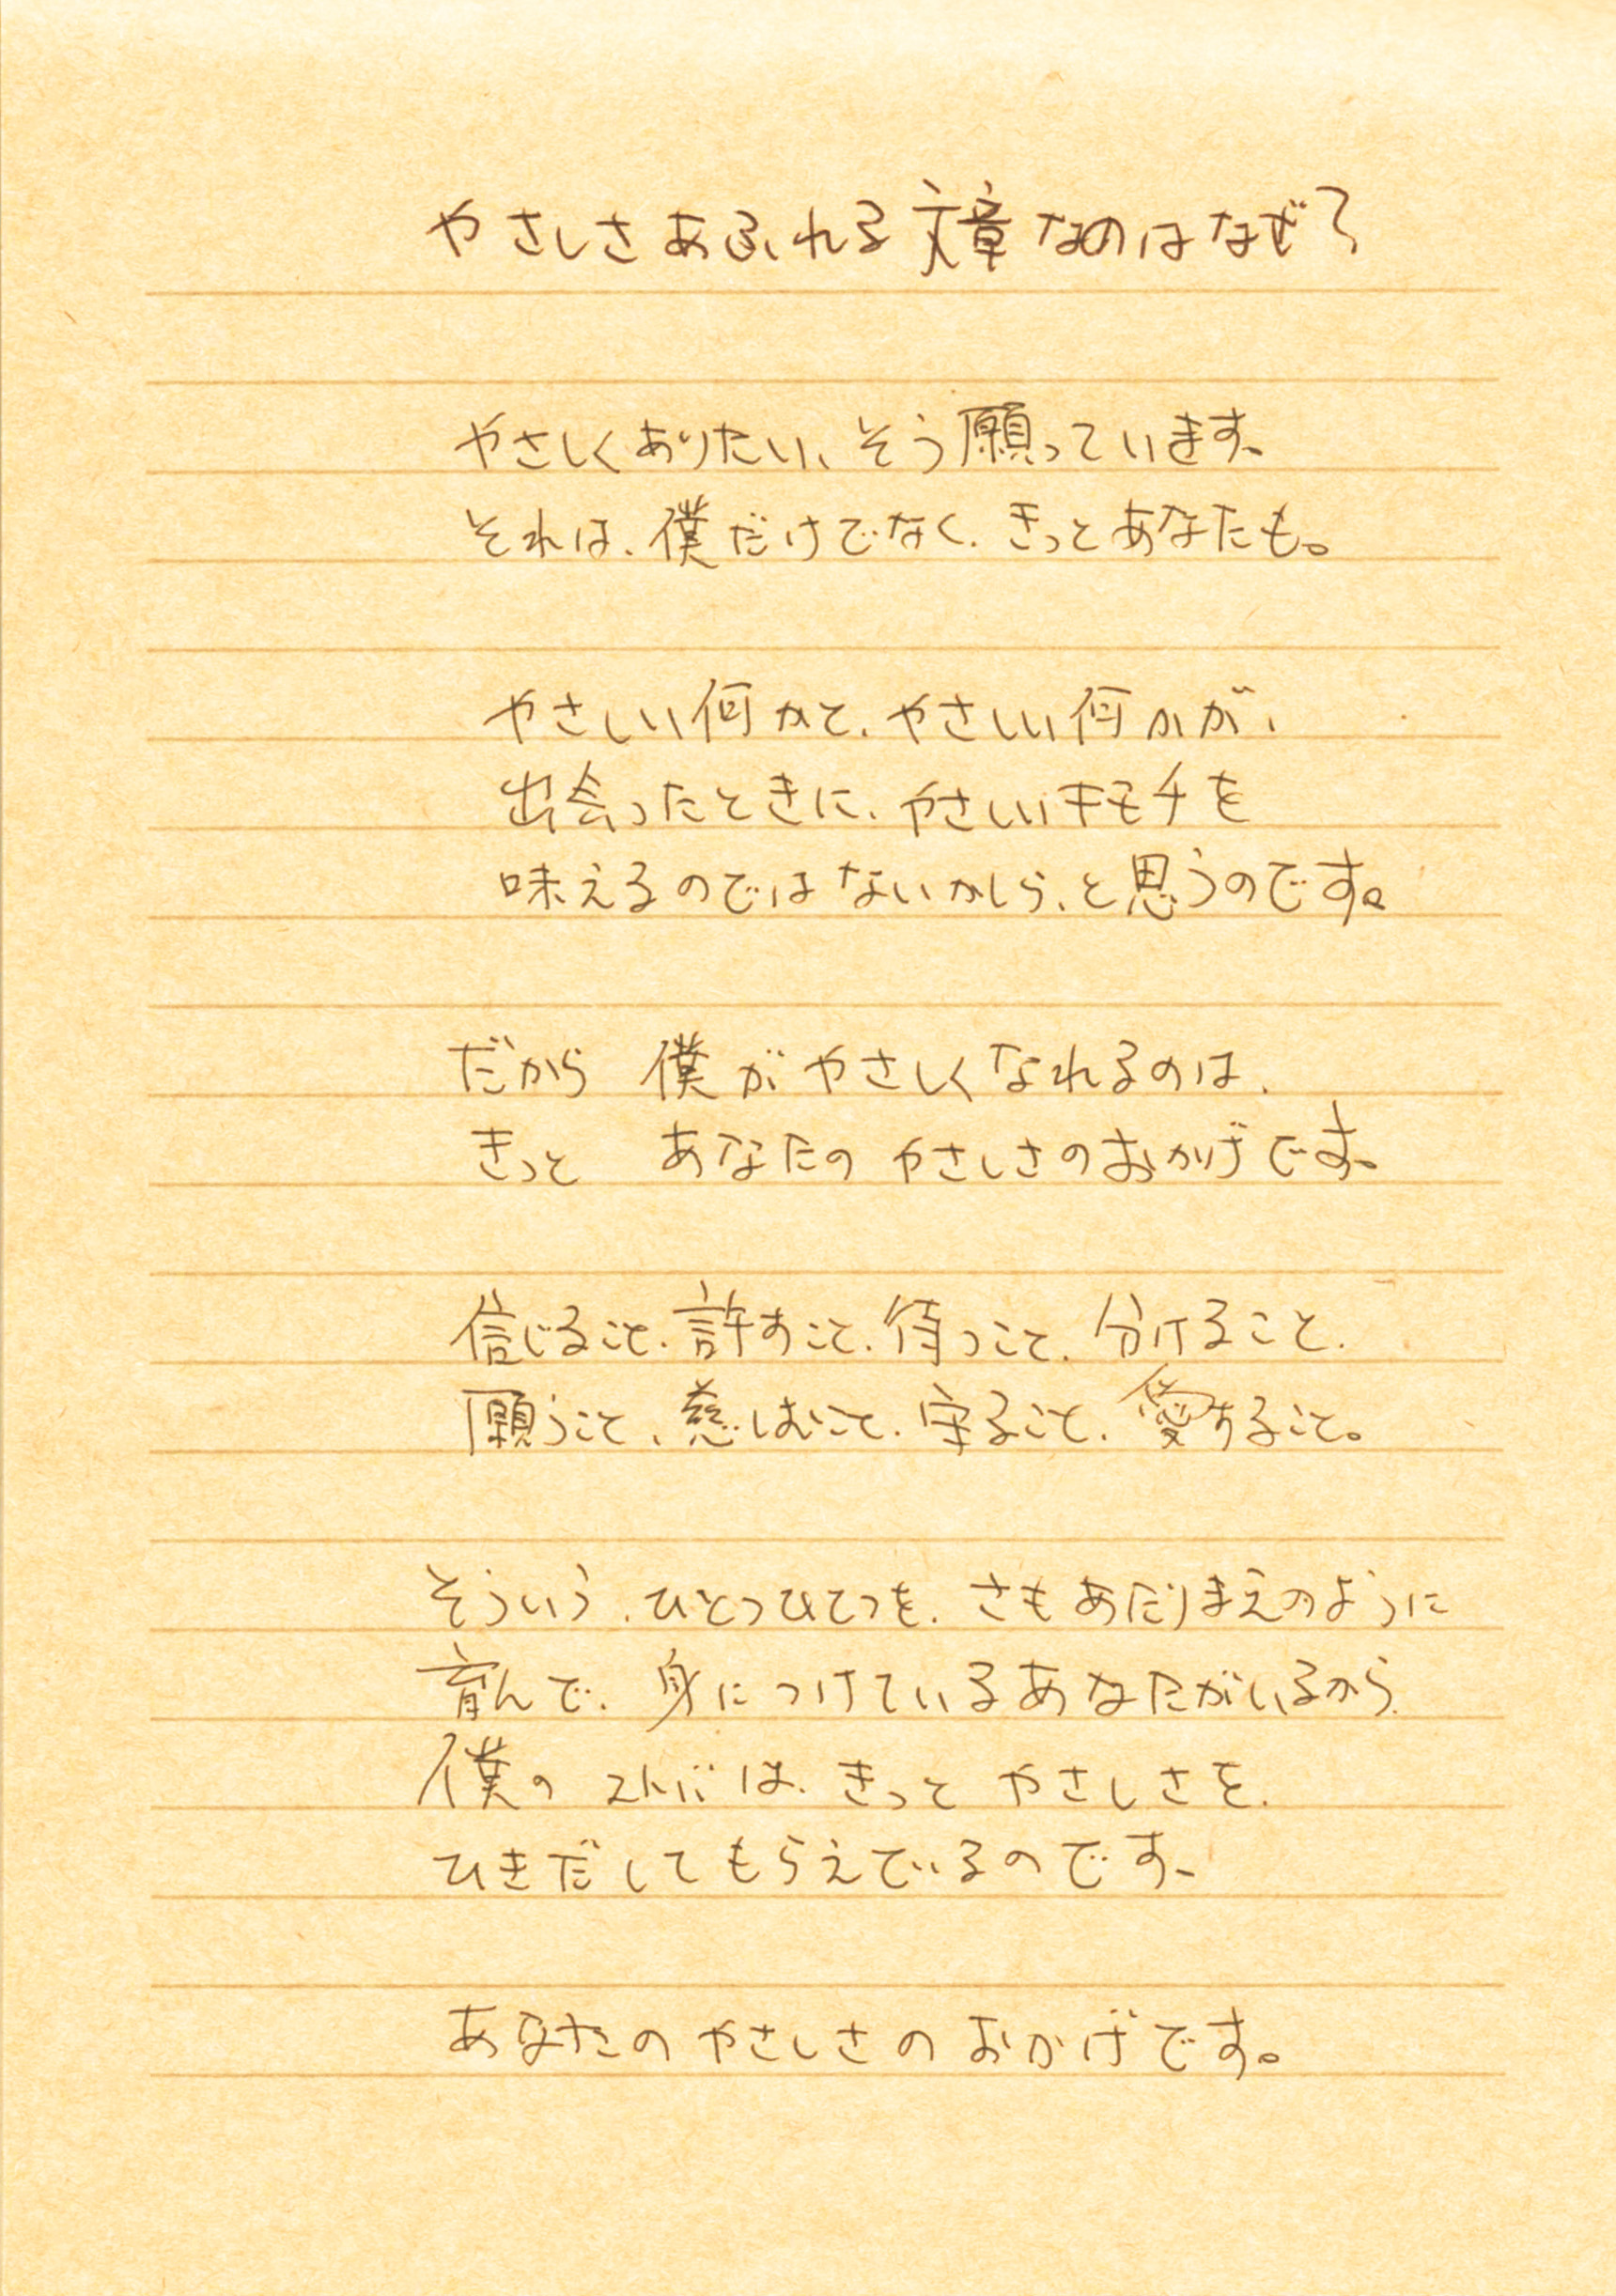 やさしさあふれる文章なのはなぜ?
やさしくありたい、そう願っています。
それは、僕だけでなく、きっとあなたも。
やさしい何かと、やさしい何かが、
出会ったときに、やさしいキモチを
味えるのではないかしら、と思うのです。
だから 僕がやさしくなれるのは、
きっと あなたの やさしさのおかげです。
信じること、許すこと、待つこと、分けること、
願うこと、慈しむこと、守ること、愛すること。
そういう、ひとつひとつを、さもあたりまえのように
育んで、身につけているあなたがいるから
僕の コトバは、きっと やさしさを、
ひきだしてもらえているのです。
あなたの やさしさの おかげです。